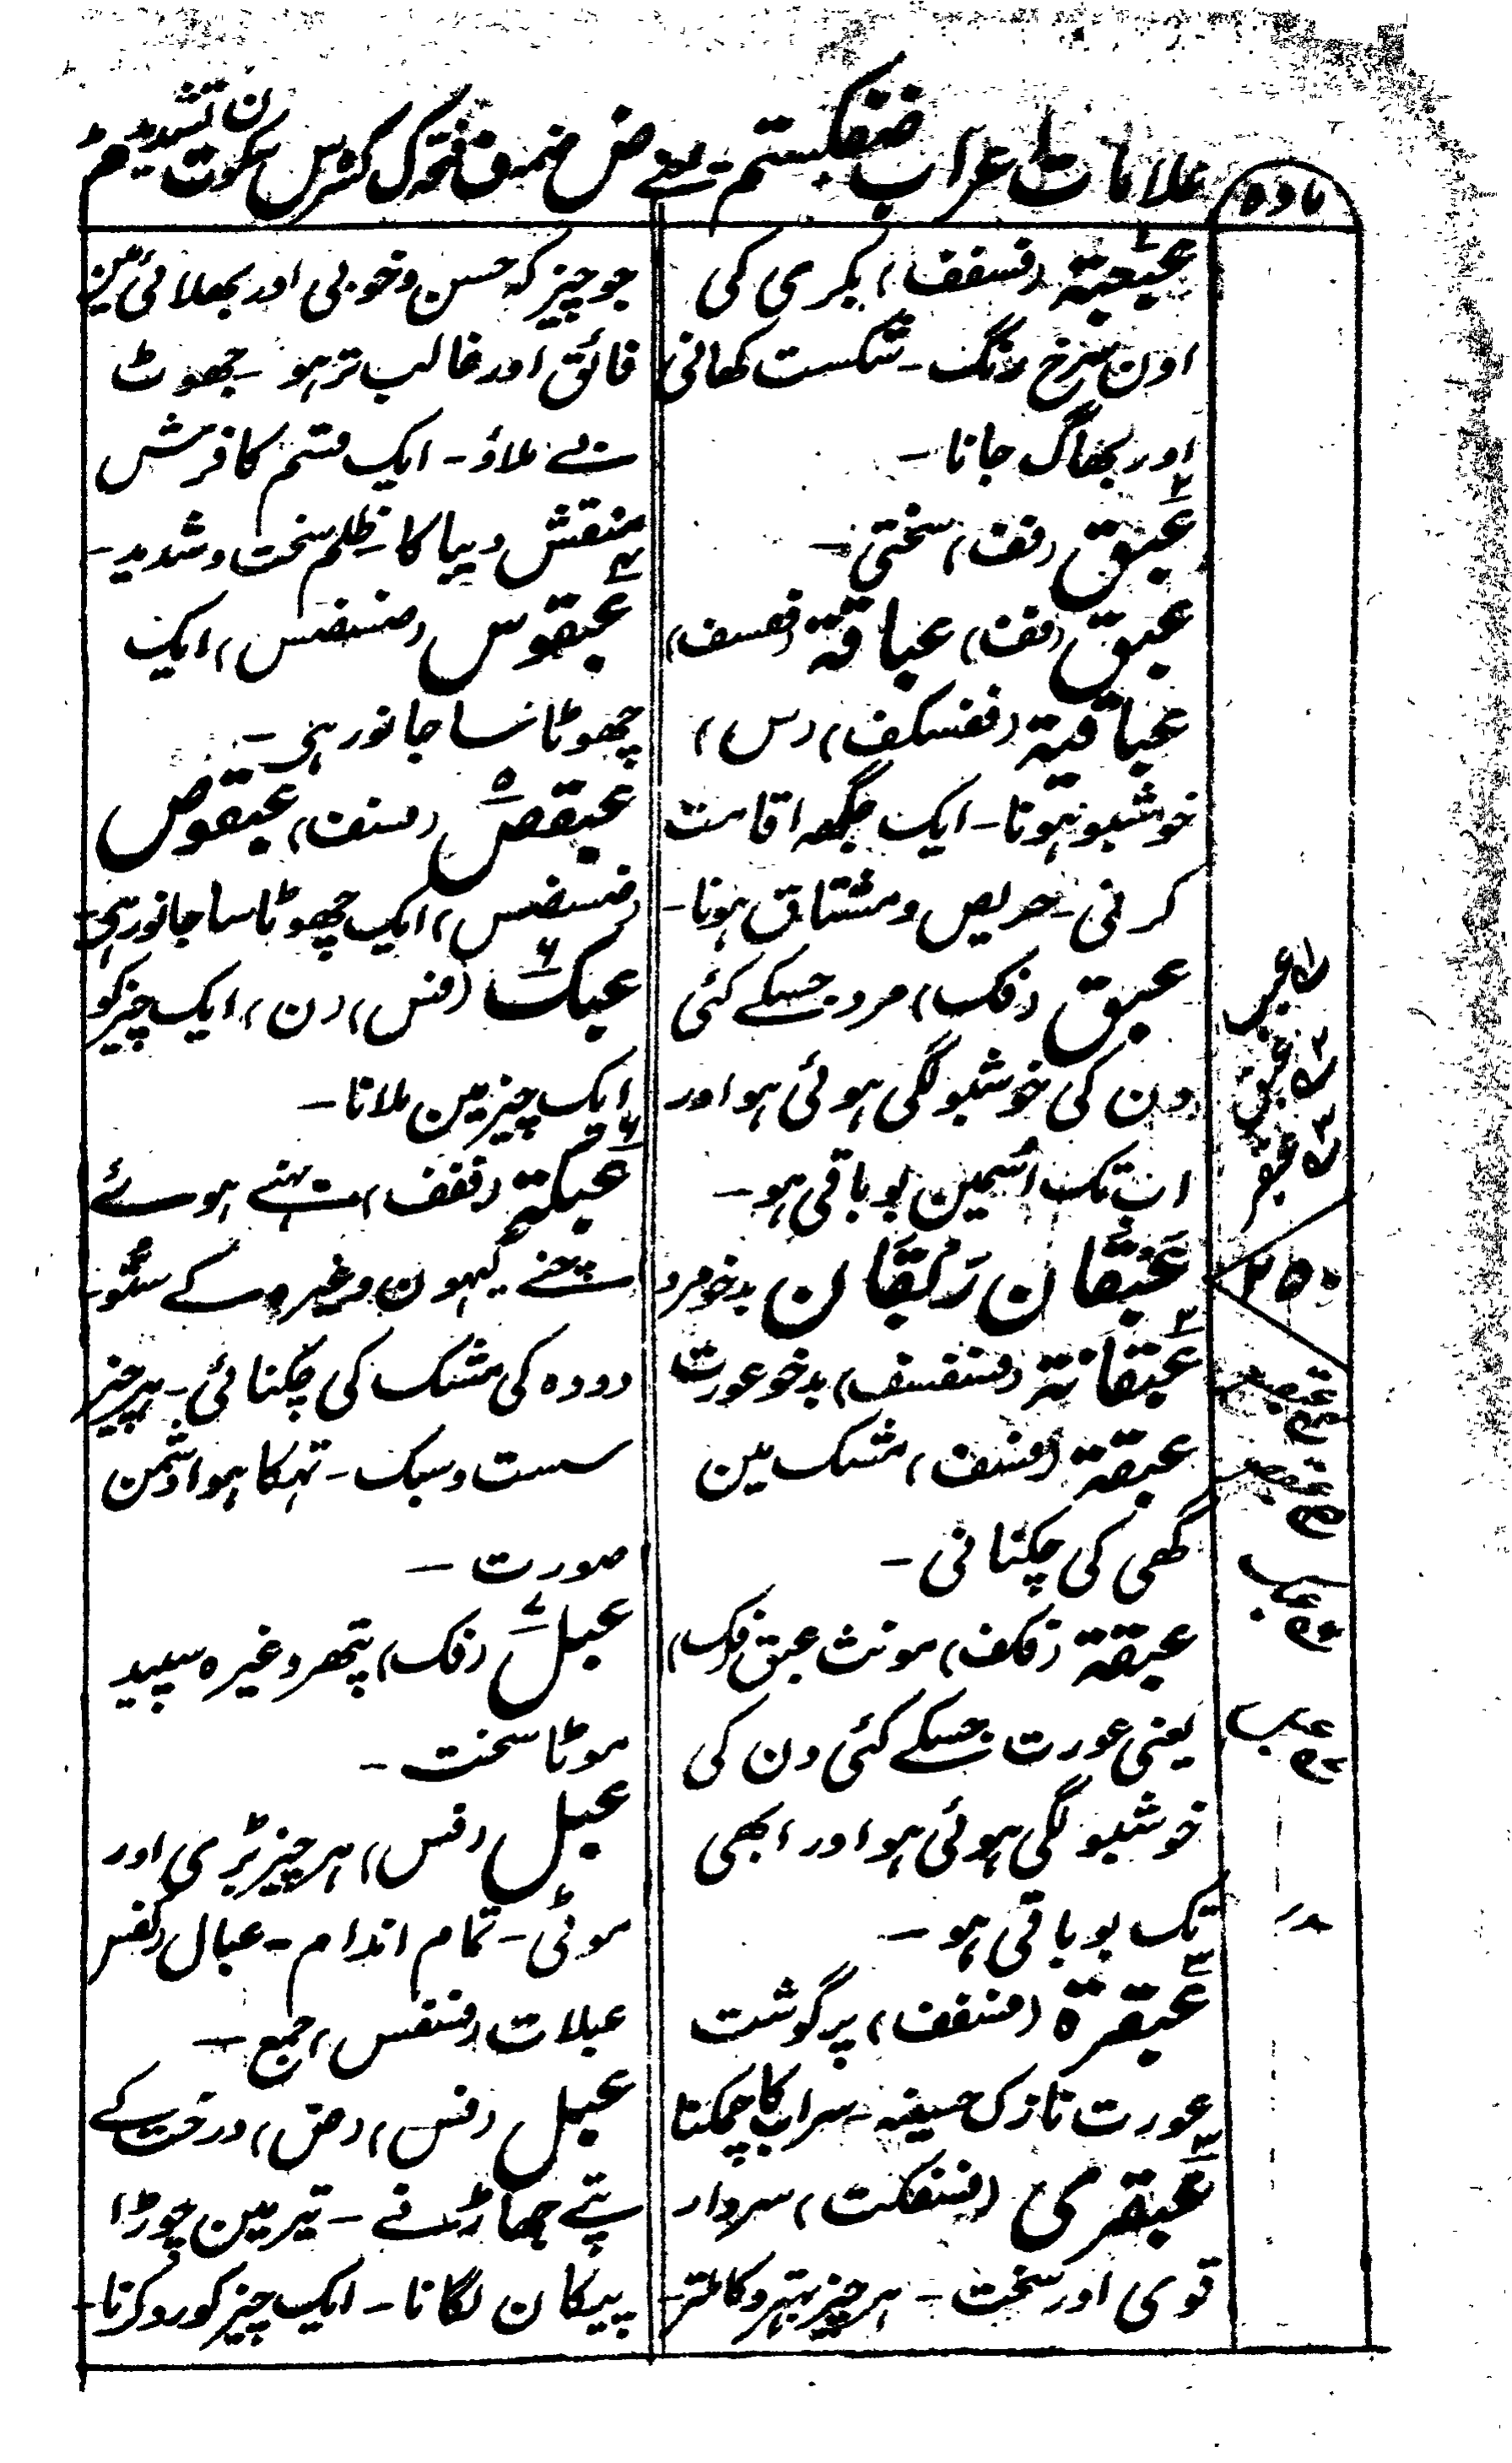 مادہ
علامات اعراب ضفکستم یعنے ض ضمہ ف فتحہ ک کسرہ س سکون ت تشدید م مد
عبعبة (فسفف) بکری کی
اون سرخ رنگ - شکست کھانی
اور بھاگ جانا -
عبق (فف) سختی -
عبق (فف) عباقة (ففسف)
عباقیة (ففسکف) (س)
خوشبو ہونا - ایک جگہہ اقامت
کرنی - حریص و مشتاق ہونا -
عبق (فک) مرد جسکے کئی
دن کی خوشبو لگی ہوئی ہو اور
اب تک اسمین بو باقی ہو -
عبقان ربقان بدخو مرد
عبقانة (فسففسف) بدخو عورت
عبقة (فسف) مشک مین
گھی کی چکنائی -
عبقة (فکف) مونث عبق (فک)
یعنی عورت جسکے کئی دن کی
خوشبو لگی ہوئی ہو اور ابھی
تک بو باقی ہو -
عبقرة (فسفف) پر گوشت
عورت نازک حسینہ - سراب کا چمکنا
عبقری (فسفکت) سردار
قوی اور سخت - ہر چیز بہتر و کاملتر -
جو چیز کہ حسن و خوبی اور بھلائی مین
فائق اور غالب تر ہو - جھوٹ
بے ملاؤ - ایک قسم کا فرش
منقش دیبا کا - ظلم سخت و شدید -
عبقوس (ضسضس) ایک
چھوٹا سا جانور ہی -
عبقص (فسف) عبقوص
(ضسضس) ایک چھوٹا سا جانور ہی -
عبک (فس) (ن) ایک چیز کو
ایک چیز مین ملانا -
عبکة (ففف) بہنے ہوئے
چنے گیہون وغیرہ کے ستو -
دودہ کی مشک کی چکنائی - ہر چیز
سست و سبک - تہکا ہوا دشمن
صورت -
عبل (فک) پتھر وغیرہ سپید
موٹا سخت -
عبل (فس) ہر چیز بڑی اور
موٹی - تمام اندام - عبال (کفس)
عبلات (فسفس) جمع -
عبل (فس) (ض) درخت کے
پتے جھاڑنے - تیر مین چوڑا
پیکان لگانا - ایک چیز کو رد کرنا -
عبق
عبقر